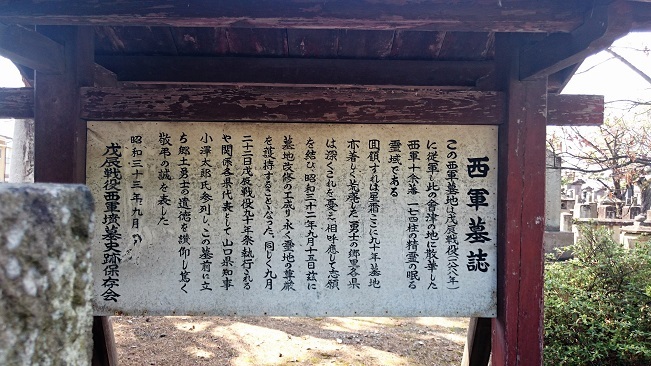 西軍墓誌
この西軍墓地は戊辰戦役(一八六八年)
に従軍し此の會津の地に散華した
西軍十余藩一七四柱の精霊の眠る
霊域である
回顧すれば星霜ここに九十年墓地
亦著しく荒廃した勇士の郷里各県
は深くこれを憂え相呼應して志願
を結び昭和三十二年九月十五日茲に
墓地改修の工成り永く霊地の尊厳
を護持することになった同じく九月
二十二日戊辰戦役九十年祭執行される
や関係各県代表として山口県知事
小澤太郎氏参列しこの墓前に立
ち郷土勇士の遺徳を讃仰し篤く
敬弔の誠を表した
昭和三十三年九月
戊辰戦役西軍墳墓史跡保存会